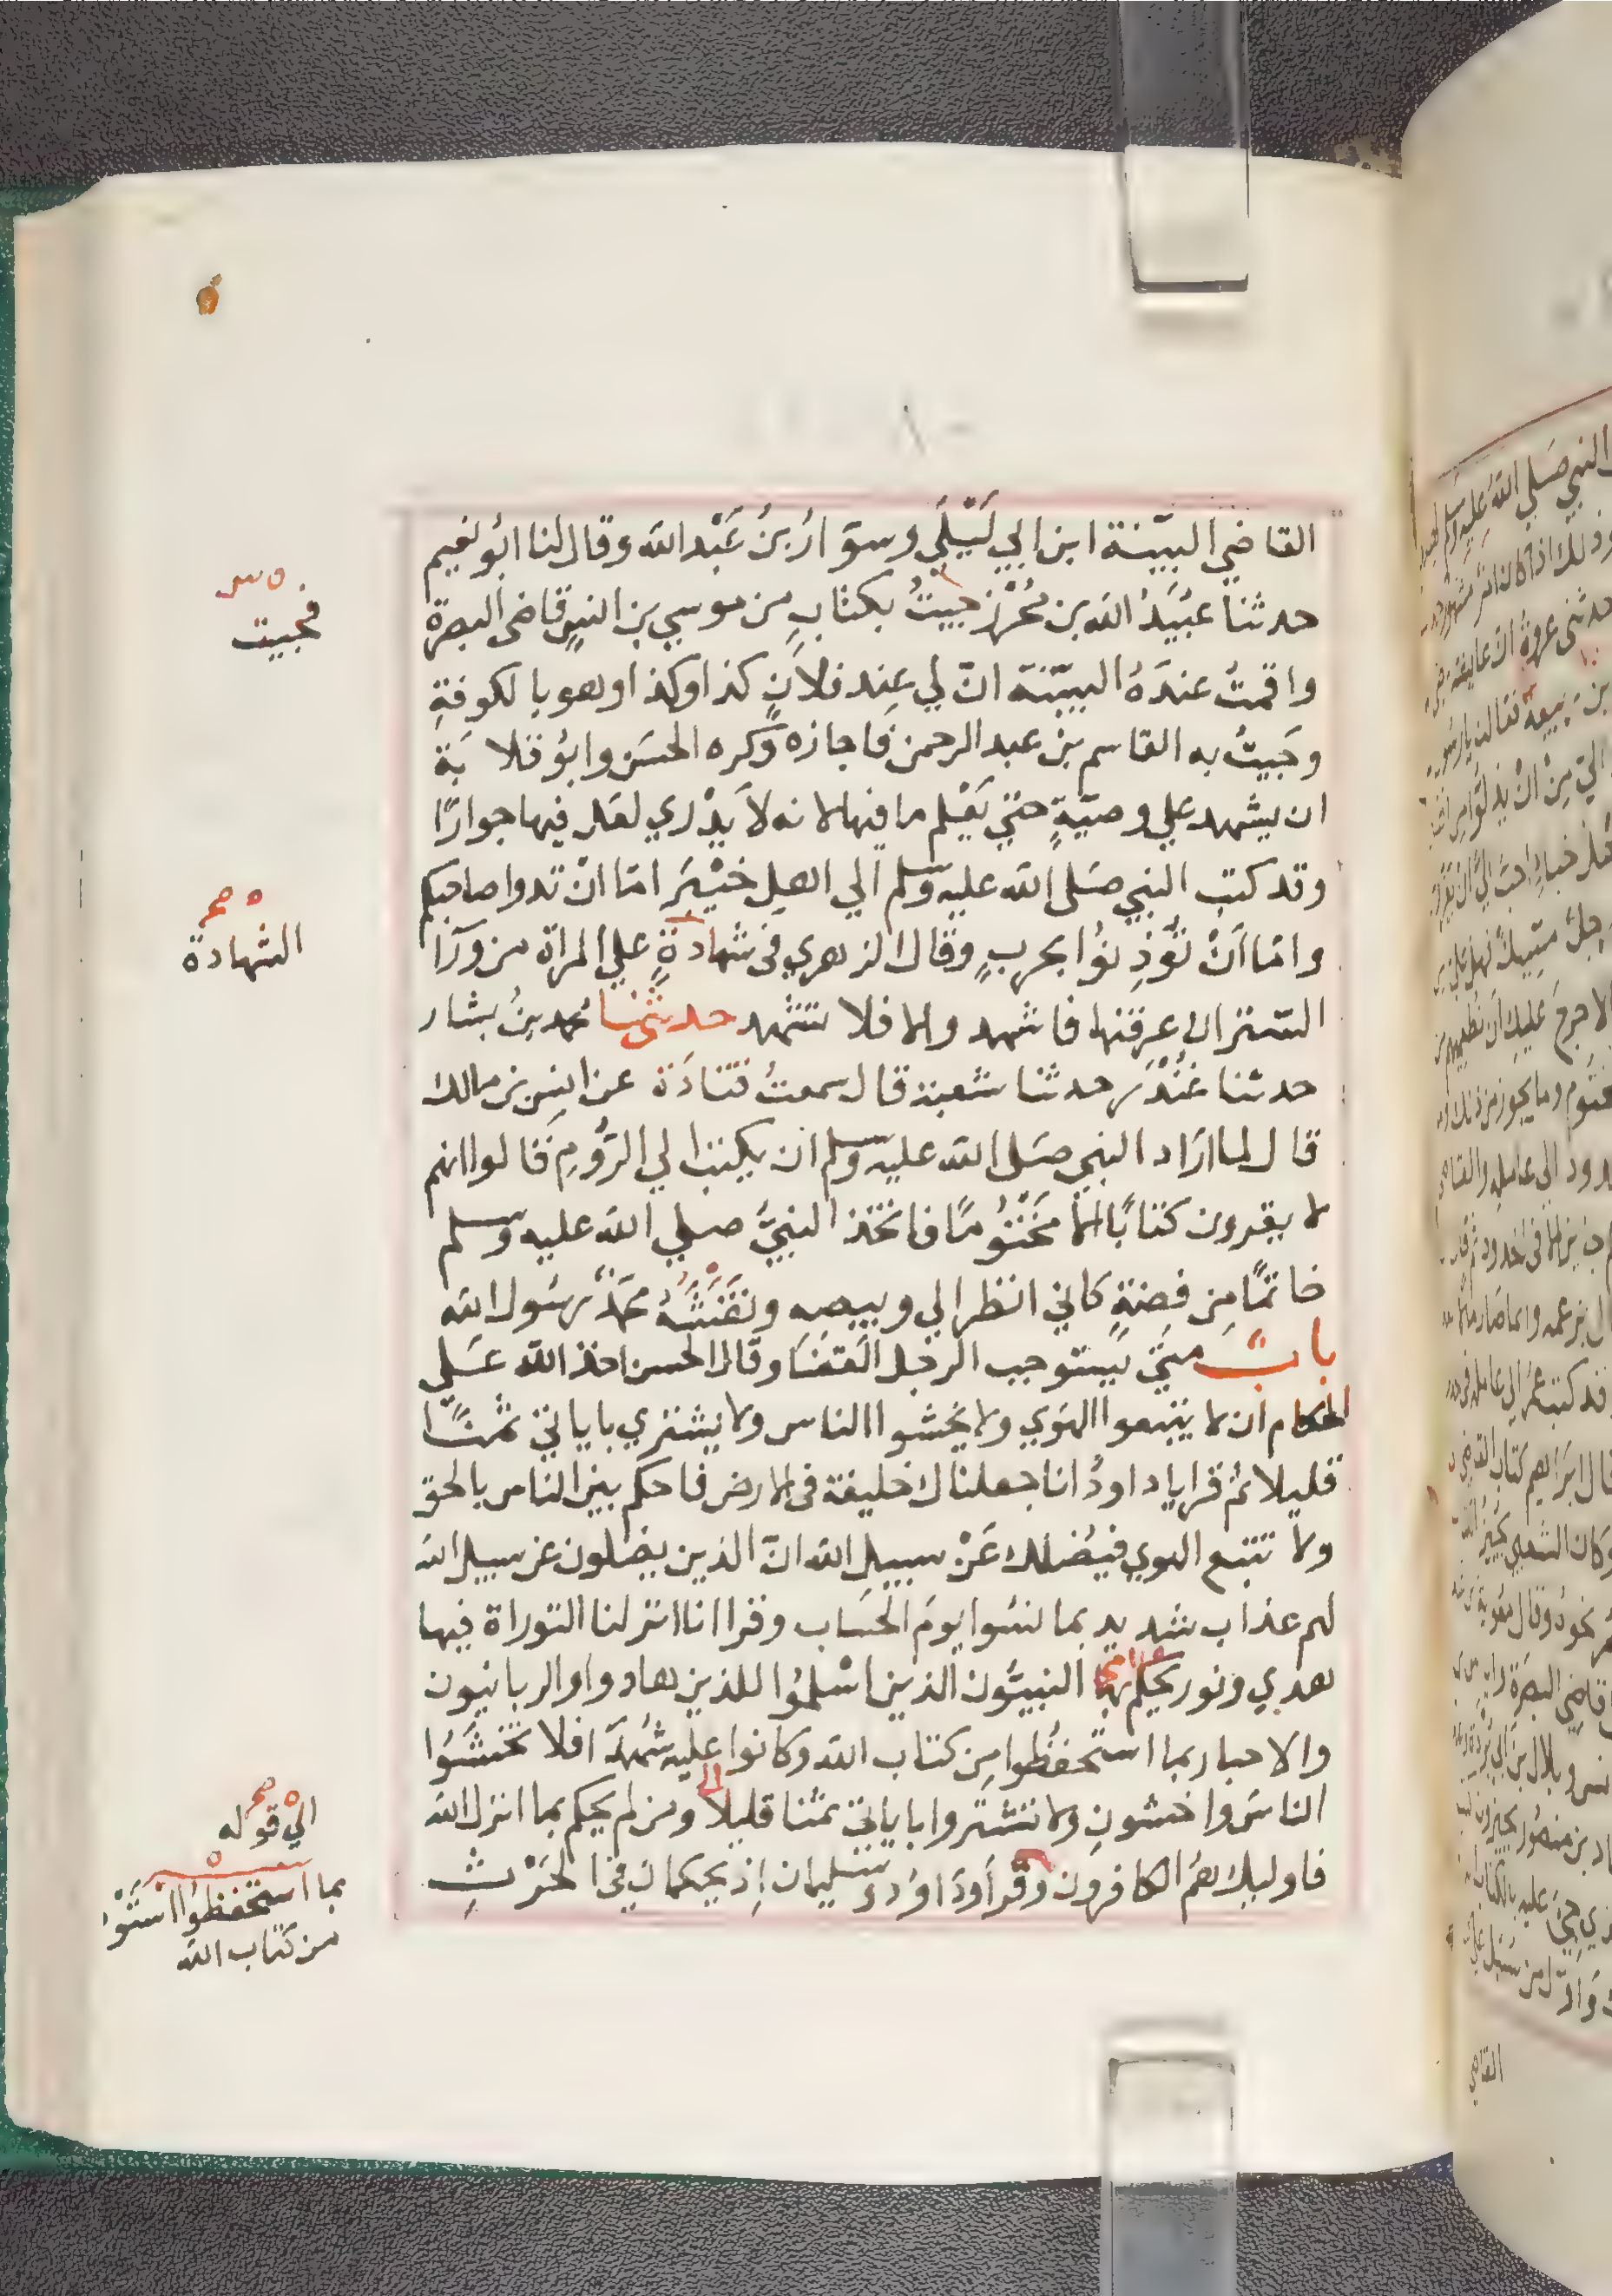 القاضي البيّنة ابن ابي لَيْلَي وسوّارُ بنُ عَبْد الله وقال لنا ابُو نعيم
حدثنا عبُيَدُ الله بن مُحْرِز جيتُ بكتابٍ من موسي بن انسٍ قاضي البصرة
واقمتُ عندَهُ البيّنة انّ لي عِند فلانٍ كذا وكذا وهو بالكوفةِ
وجَيتُ به القاسم بن عبد الرحمن فاجازه وَكره الحسَن وابُو قلابَة
ان يشهد علي وصيّةٍ حتي يَعْلم ما فيها لانه لاَ يدْري لعَل فيها جوارًا
وقد كتب النبي صَلي الله عليه وَسلم الي اهل خيْبَر امّا انْ تدوا صاحبكم
وامّا اَنْ تُوذِنوُا بحربٍ وقال الزهري في شهادةٍ علي المراة من ورَآ
السّتر ان عرِفتها فاشهد والا فلا تشهد حدثني محمد بنُ بشار
حدثنا غُنْدَر حدثنا شعبة قال سمعتُ قتادَة عن انسِ بن مالك
قال لما ارَاد النبي صَلي الله عليه وَسلم ان يكتب الي الرُّومِ قَالوا انهم
لا يقرون كتابًا الا مَخْتُومًا فاتخذ النبيَّ صلي الله عليه وَسلم
خاتمًا مِن فِضةٍ كاني انظر الي وبيصه ونَقَشَهُ محَمَّدٌ رسُول الله
بابٌ مَتيَ يَستوجب الرجل القضَا وقال الحسن اخذ الله عَلي
الحكام ان لا يتبعوا الهوَي ولا يخشوا الناس ولا يشتري باياتي ثمنًا
قليلا ثم قرا ياداودُ انا جعلناك خليفة في الارض فاحكم بين الناس بالحق
ولا تتبع الهوي فيُضلك عَنْ سبيلِ الله انّ الذين يضلون عن سبيل الله
لهم عذاب شديد بما نسُوا يومَ الحسَاب وقرا انا انزلنا التوراة فيها
هدي ونور يحكم بها النبيُّون الذين اسْلمُوا للذين هادوا والربانيون
والاحبار بما استحفُظوا مِن كتاب الله وكانوا عليه شُهدَآ فلا تَخشَوُا
الناسَ واخشونِ ولا تشتروا باياتي ثمنا قليلاً ومن لم يحكم بما انزل الله
فاوليك هُم الكافرون وقَرأَ وَداوُدَ وسليمان اِذ يحكمان في الحَرْثِ
فجيت
الشهادة
الي قوله
بما استحفظوا استَوْ
من كتاب الله